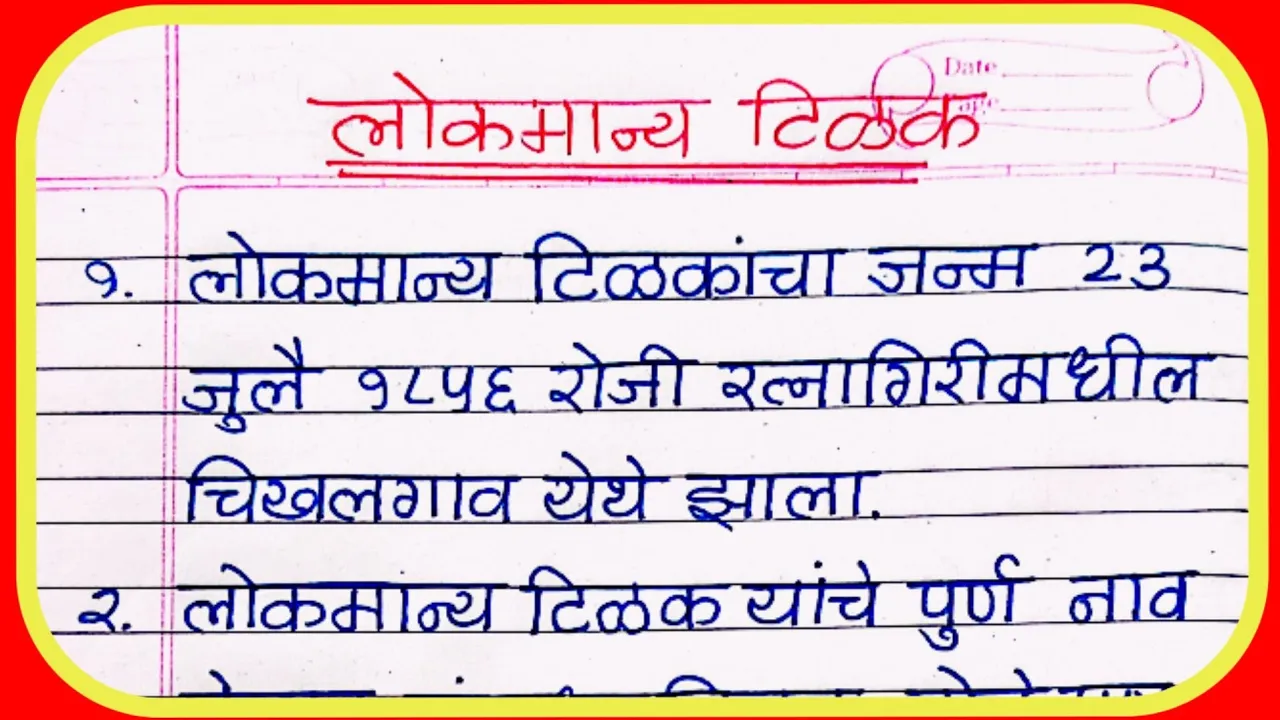 Date
लोकमान्य टिळक
१. लोकमान्य टिळकांचा जन्म २३
जुलै १८५६ रोजी रत्नागिरीमधील
चिखलगाव येथे झाला.
२. लोकमान्य टिळक यांचे पुर्ण नाव